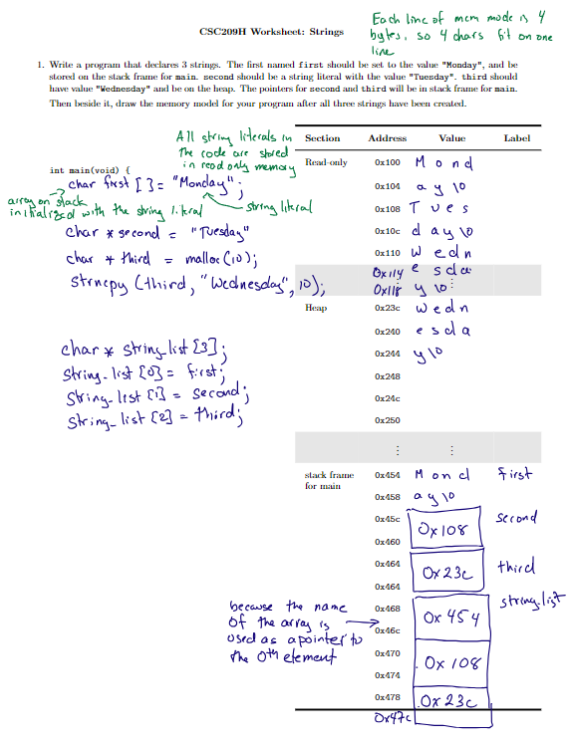 CSC209H Worksheet: Strings
Each line of mem model is 4
bytes, so 4 chars fit on one
line
1. Write a program that declares 3 strings. The first named first should be set to the value "Monday", and be
stored on the stack frame for main. second should be a string literal with the value "Tuesday". third should
have value "Wednesday" and be on the heap. The pointers for second and third will be in stack frame for main.
Then beside it, draw the memory model for your program after all three strings have been created.
All string literals in
the code are stored
in read only memory
int main(void) {
char first [] = "Monday";
array on stack
initialized with the string literal
string literal
char * second = "Tuesday"
char * third = malloc(10);
strncpy (third, "Wednesday", 10);
char * string_list [3];
string_list [0] = first;
string_list [1] = second;
string_list [2] = third;
because the name
of the array is
used as a pointer to
the 0th element
Section Address Value Label
Read-only 0x100 M o n d
0x104 a y \0
0x108 T u e s
0x10c d a y \0
0x110 W e d n
0x114 e s d a
0x118 y \0
Heap 0x23c W e d n
0x240 e s d a
0x244 y \0
0x248
0x24c
0x250
⋮ ⋮
stack frame 0x454 M o n d first
for main
0x458 a y \0
0x45c second
0x108
0x460
0x464 third
0x23c
0x464
0x468 string_list
0x454
0x46c
0x470
0x108
0x474
0x478
0x23c
0x47c